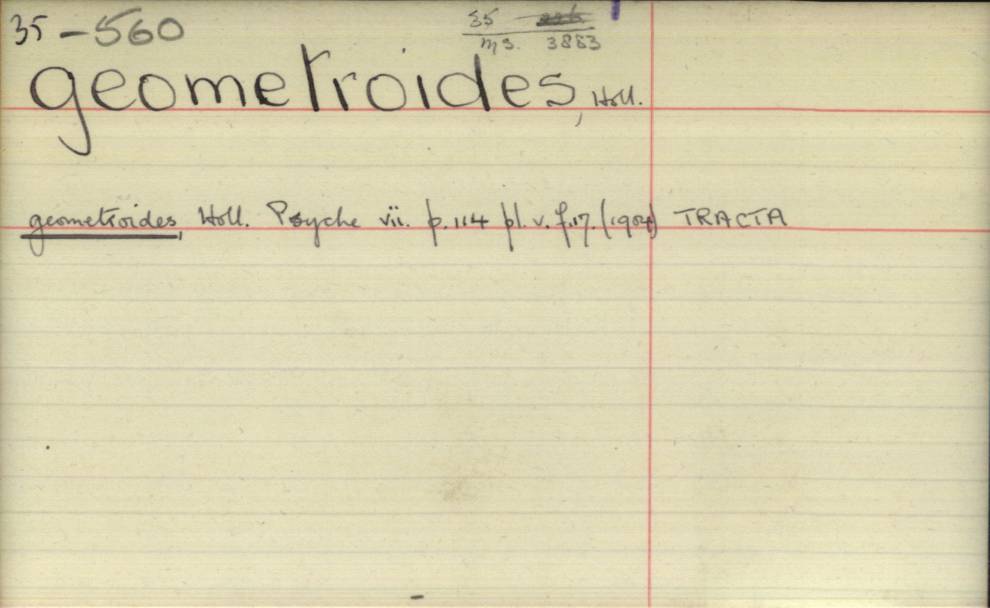 35-560
35
ms. 3883
geometroides, Holl.
geometroides, Holl. Psyche vii. p. 114 pl. v. f. 17. (1904) TRACTA